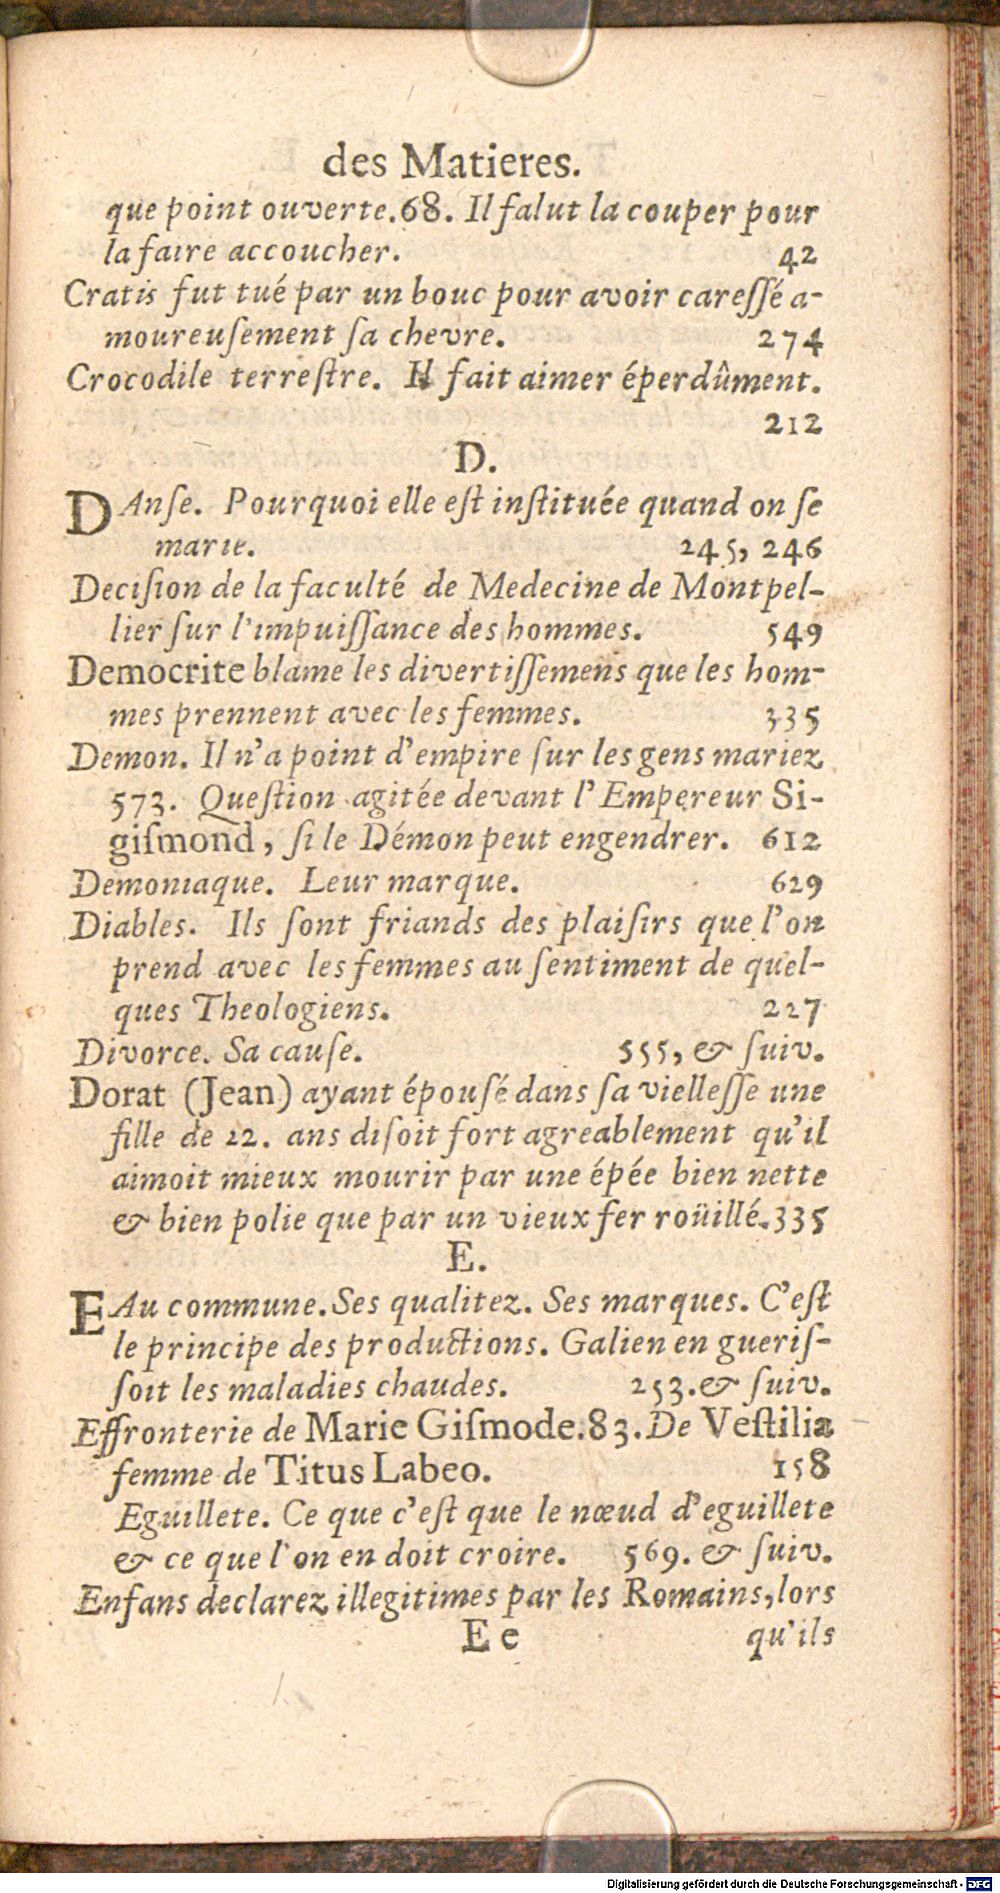 des Matieres.
que point ouverte.68. Il falut la couper pour
la faire accoucher. 42
Cratis fut tué par un bouc pour avoir careſſé a-
moureuſement ſa chevre. 274
Crocodile terreſtre. Il fait aimer éperdûment.
212
D.
DAnſe. Pourquoi elle eſt inſtituée quand on ſe
marie. 245, 246
Deciſion de la faculté de Medecine de Montpel-
lier ſur l'impuiſſance des hommes. 549
Democrite blame les divertiſſemens que les hom-
mes prennent avec les femmes. 335
Demon. Il n'a point d'empire ſur les gens mariez
573. Queſtion agitée devant l'Empereur Si-
giſmond, ſi le Démon peut engendrer. 612
Demoniaque. Leur marque. 629
Diables. Ils ſont friands des plaiſirs que l'on
prend avec les femmes au ſentiment de quel-
ques Theologiens. 227
Divorce. Sa cauſe. 555, & ſuiv.
Dorat (Jean) ayant épouſé dans ſa viellesſe une
fille de 22. ans diſoit fort agreablement qu'il
aimoit mieux mourir par une épée bien nette
& bien polie que par un vieux fer roüillé.335
E.
EAu commune. Ses qualitez. Ses marques. C'eſt
le principe des productions. Galien en gueriſ-
ſoit les maladies chaudes. 253. & ſuiv.
Effronterie de Marie Giſmode.83. De Veſtilia
femme de Titus Labeo. 158
Eguillete. Ce que c'eſt que le nœud d'eguillete
& ce que l'on en doit croire. 569. & ſuiv.
Enfans declarez illegitimes par les Romains, lors
E e qu'ils
Digitalisierung gefördert durch die Deutsche Forschungsgemeinschaft - DFG